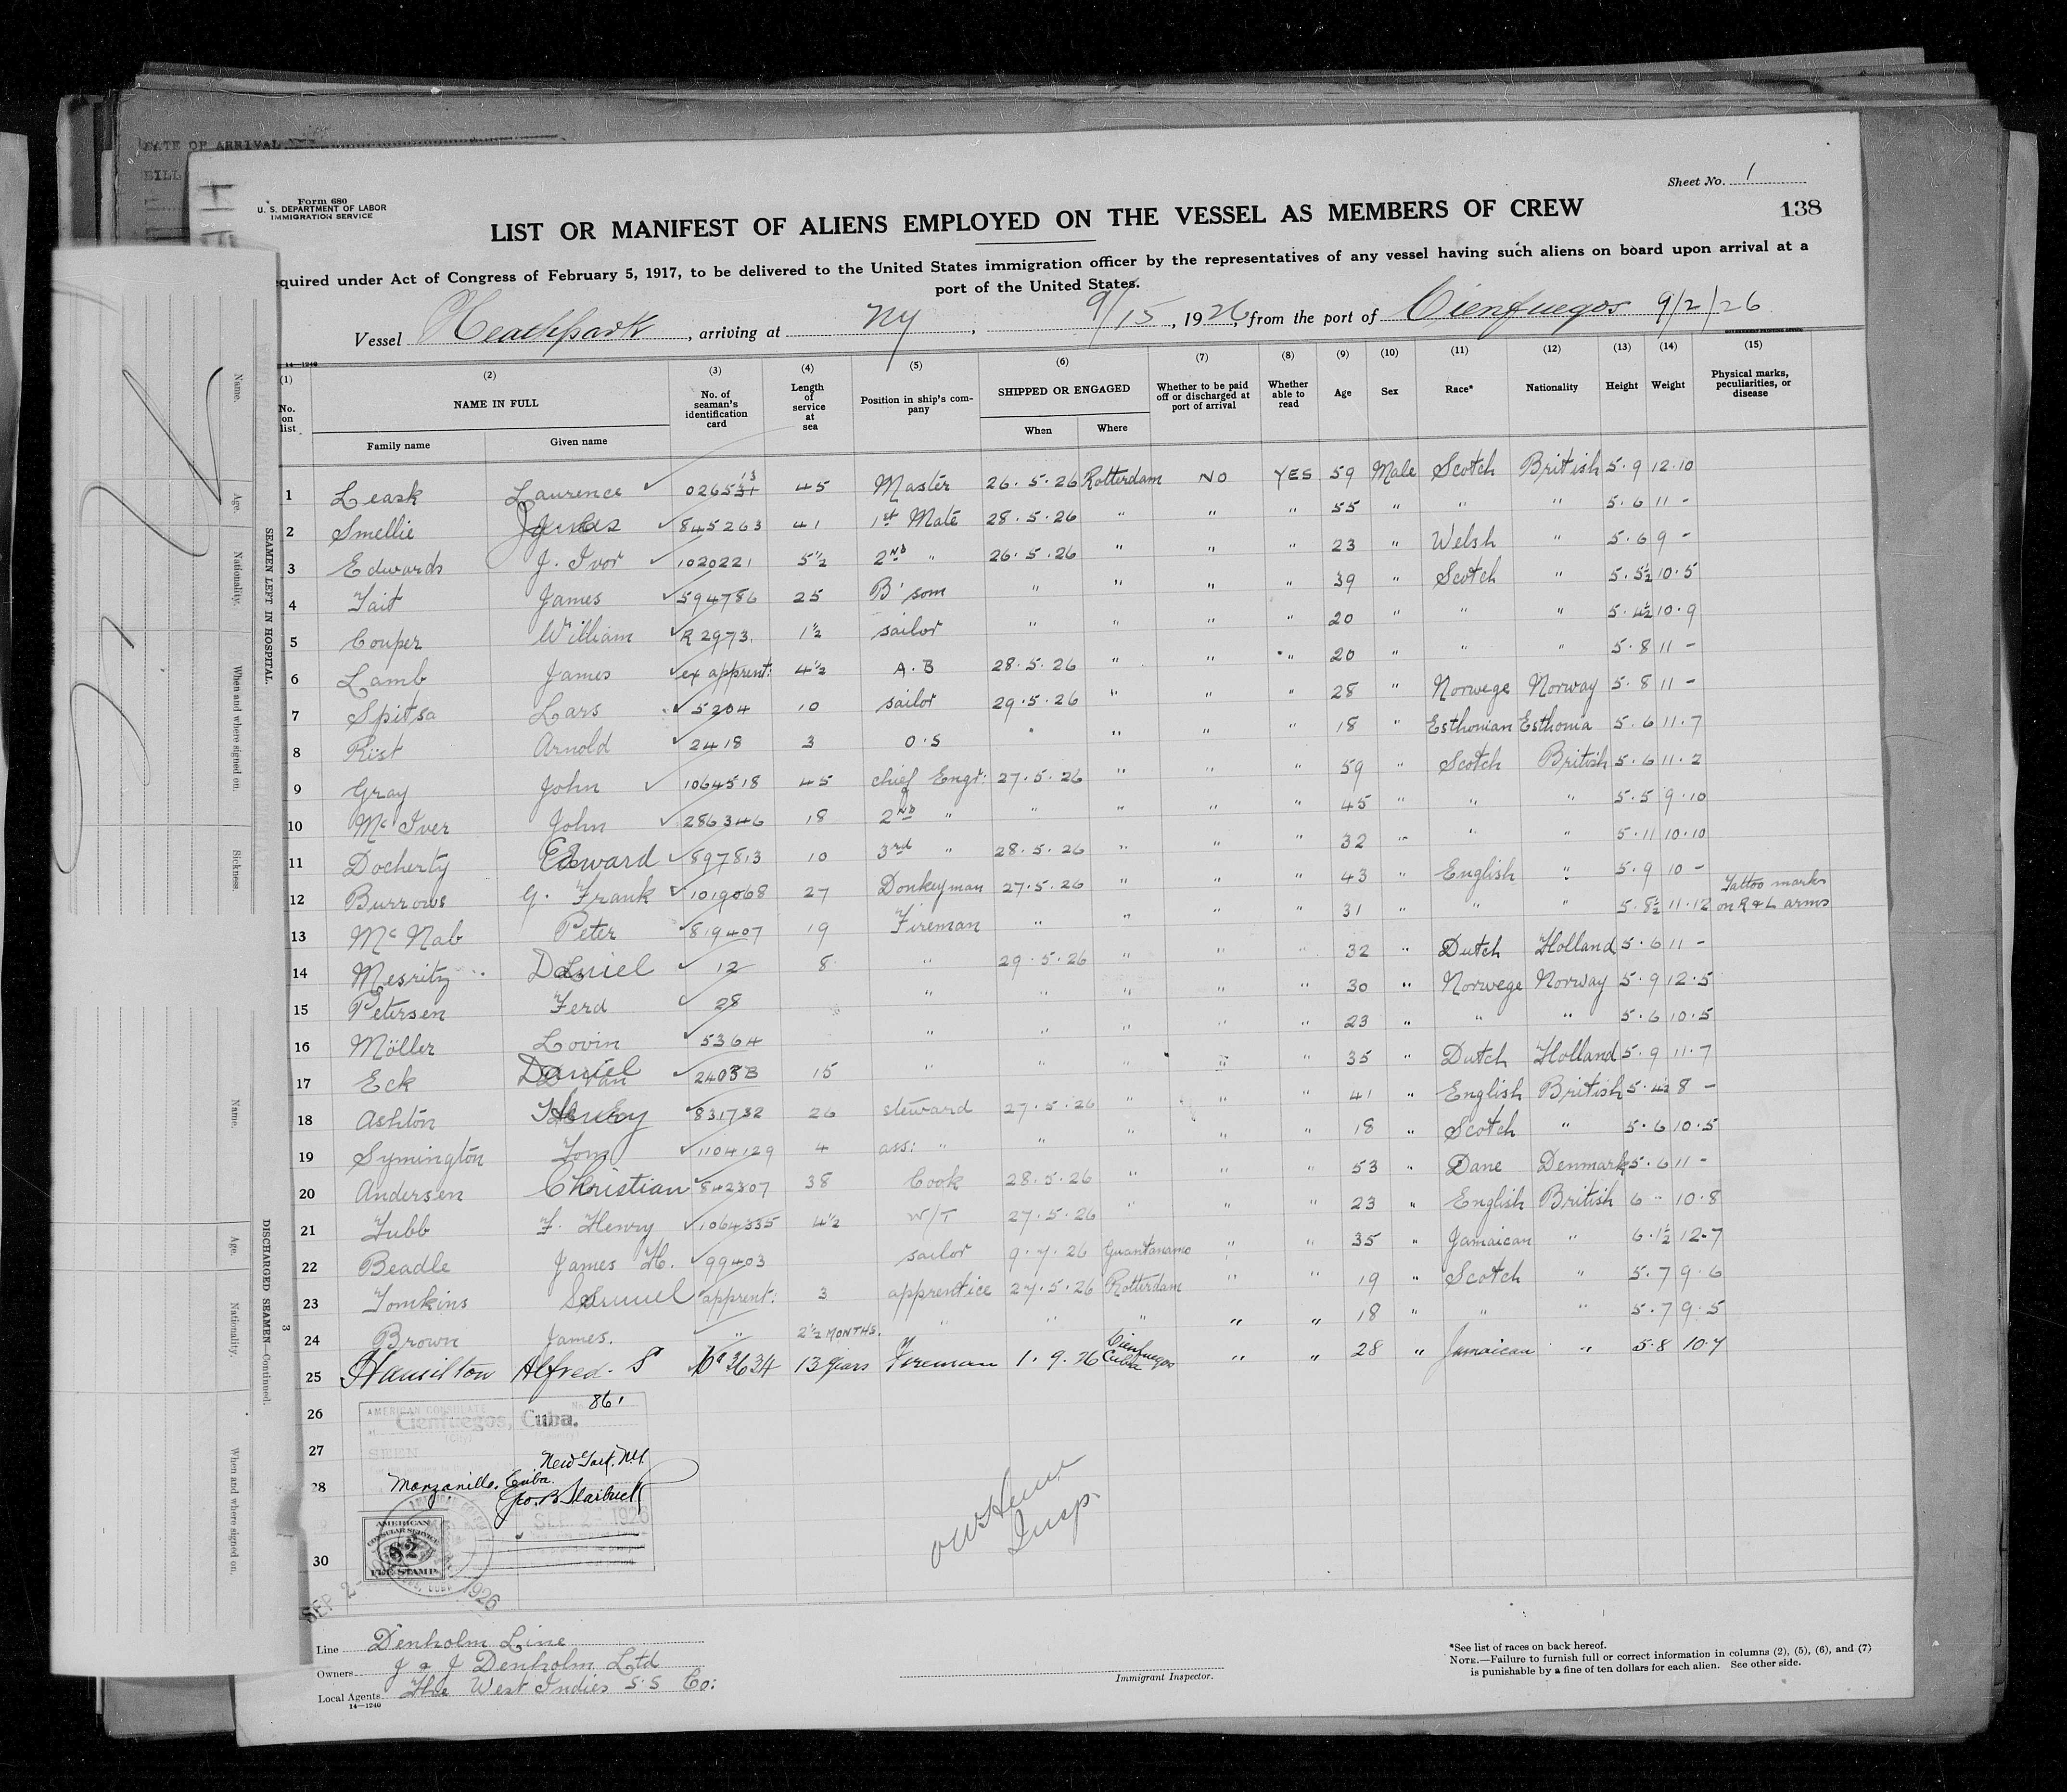 DATE OF ARRIVAL
BILL
Form 680
U. S. DEPARTMENT OF LABOR
IMMIGRATION SERVICE
Sheet No. 1
138
LIST OR MANIFEST OF ALIENS EMPLOYED ON THE VESSEL AS MEMBERS OF CREW
quired under Act of Congress of February 5, 1917, to be delivered to the United States immigration officer by the representatives of any vessel having such aliens on board upon arrival at a
port of the United States.
Vessel Heathpark, arriving at NY, 9/15, 1926, from the port of Cienfuegos 9/2/26
14—1240
(1) (2) (3) (4) (5) (6) (7) (8) (9) (10) (11) (12) (13) (14) (15)
No. on list NAME IN FULL No. of seaman's identification card Length of service at sea Position in ship's company SHIPPED OR ENGAGED Whether to be paid off or discharged at port of arrival Whether able to read Age Sex Race* Nationality Height Weight Physical marks, peculiarities, or disease
Family name Given name When Where
1 Leask Laurence 026531 13 45 Master 26.5.26 Rotterdam NO YES 59 Male Scotch British 5.9 12.10
2 Smellie James 845263 41 1st Mate 28.5.26 " " " 55 " " " 5.6 11 -
3 Edwards J. Ivor 1020221 5½ 2ND " 26.5.26 " " " 23 " Welsh " 5.6 9 -
4 Tait James 594786 25 B'som " " " " 39 " Scotch " 5.5½ 10.5
5 Couper William R 2973 1½ sailor " " " " 20 " " " 5.4½ 10.9
6 Lamb James ex apprent: 4½ A.B 28.5.26 " " " 20 " " " 5.8 11 -
7 Spitsa Lars 5204 10 sailor 29.5.26 " " " 28 " Norwege Norway 5.8 11 -
8 Rist Arnold 2418 3 O.S " " " " 18 " Esthonian Esthonia 5.6 11.7
9 Gray John 1064518 45 chief Engr: 27.5.26 " " " 59 " Scotch British 5.6 11.2
10 McIver John 286346 18 2ND " " " " " 45 " " " 5.5 9.10
11 Docherty Edward 897813 10 3rd " 28.5.26 " " " 32 " " " 5.11 10.10
12 Burrows G. Frank 1019068 27 Donkeyman 27.5.26 " " " 43 " English " 5.9 10 -
13 McNab Peter 819407 19 Fireman " " " " 31 " " " 5.8½ 11.12 Tattoo marks on R & L arms
14 Mesritz Daniel 12 8 " 29.5.26 " " " 32 " Dutch Holland 5.6 11 -
15 Petersen Ferd 28 " " " " " 30 " Norwege Norway 5.9 12.5
16 Möller Lovin 5364 " " " " " 23 " " " 5.6 10.5
17 Eck Daniel Van 2403B 15 " " " " " 35 " Dutch Holland 5.9 11.7
18 Ashton Henry 831732 26 steward 27.5.26 " " " 41 " English British 5.4½ 8 -
19 Symington Tom 1104129 4 ass: " " " " " 18 " Scotch " 5.6 10.5
20 Andersen Christian 842307 38 Cook 28.5.26 " " " 53 " Dane Denmark 5.6 11 -
21 Tubb F. Henry 1064335 4½ W/T 27.5.26 " " " 23 " English British 6 - 10.8
22 Beadle James H. 99403 sailor 9.7.26 Guantanamo " " 35 " Jamaican " 6.1½ 12.7
23 Tomkins Samuel apprent: 3 apprentice 27.5.26 Rotterdam " " 19 " Scotch " 5.7 9.6
24 Brown James. " 2½ MONTHS. " " " " " 18 " " " 5.7 9.5
25 Hamilton Alfred. S No 3634 13 years Fireman 1.9.26 Cienfuegos Cuba " " 28 " Jamaican " 5.8 10.7
26
27
28
30
AMERICAN CONSULATE
No. 861
Cienfuegos, Cuba.
SEEN
New York, N.Y.
Manzanillo, Cuba.
Geo. B. Starbuck
SEP 2 1926
AMERICAN
CONSULAR SERVICE
$2
FEE STAMP
SEP 2 - 1926
Insp.
Line Denholm Line
Owners J & J Denholm Ltd
Local Agents The West Indies S.S Co:
14—1240
Immigrant Inspector.
*See list of races on back hereof.
NOTE.—Failure to furnish full or correct information in columns (2), (5), (6), and (7)
is punishable by a fine of ten dollars for each alien. See other side.
SEAMEN LEFT IN HOSPITAL.
Name. Age. Nationality. When and where signed on. Sickness.
DISCHARGED SEAMEN—Continued.
3
Name. Age. Nationality. When and where signed on.